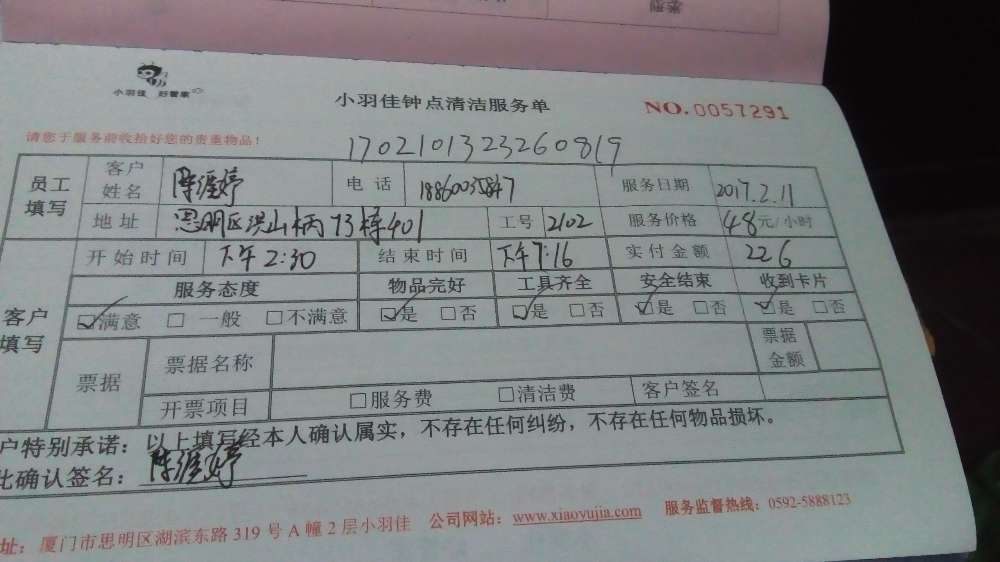 类型
小羽佳 好管家
小羽佳钟点清洁服务单 NO.0057291
请您于服务前收拾好您的贵重物品！
1702101323260819
员工填写 客户姓名 陈淮婷 电话 18860035847 服务日期 2017.2.11
地址 思明区洪山柄73栋401 工号 2102 服务价格 48元/小时
客户填写 开始时间 下午2:30 结束时间 下午7:16 实付金额 226
服务态度 物品完好 工具齐全 安全结束 收到卡片
☑满意 □一般 □不满意 ☑是 □否 ☑是 □否 ☑是 □否 ☑是 □否
票据 票据名称 票据金额
开票项目 □服务费 □清洁费 客户签名
户特别承诺：以上填写经本人确认属实，不存在任何纠纷，不存在任何物品损坏。
此确认签名：陈淮婷
址：厦门市思明区湖滨东路319号A幢2层小羽佳 公司网站：www.xiaoyujia.com 服务监督热线：0592-5888123